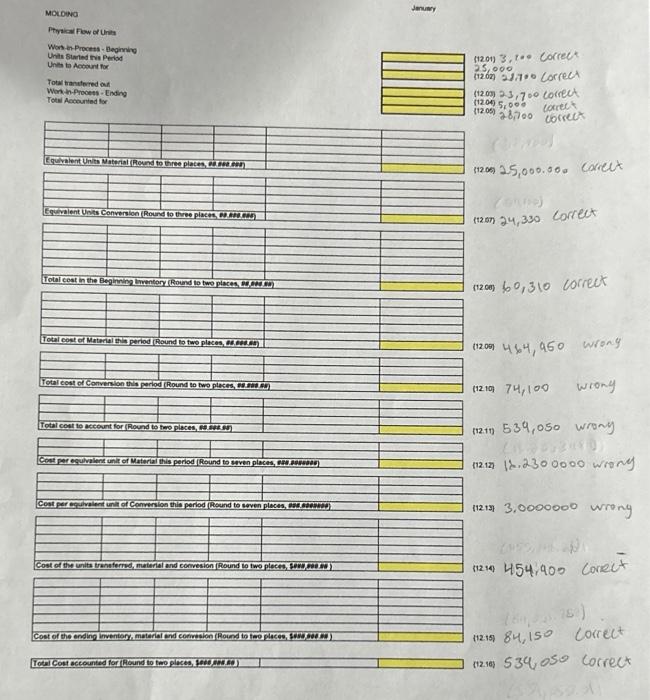 January
MOLDING
Physical Flow of Units
Work-in-Process - Beginning
Units Started this Period
Units to Account for
Total transferred out
Work-in-Process - Ending
Total Accounted for
{12.01} 3,700 correct
25,000
{12.02} 28,700 correct
{12.03} 23,700 correct
{12.04} 5,000 correct
{12.05} 28,700 correct
Equivalent Units Material (Round to three places, ##,###.###)
{12.06} 25,000.000 correct
Equivalent Units Conversion (Round to three places, ##,###.###)
{12.07} 24,330 correct
Total cost in the Beginning Inventory (Round to two places, ##,###.##)
{12.08} 60,310 correct
Total cost of Material this period (Round to two places, ##,###.##)
{12.09} 464,950 wrong
Total cost of Conversion this period (Round to two places, ##,###.##)
{12.10} 74,100 wrong
Total cost to account for (Round to two places, ##,###.##)
{12.11} 539,050 wrong
Cost per equivalent unit of Material this period (Round to seven places, ###.#######)
{12.12} 18.2300000 wrong
Cost per equivalent unit of Conversion this period (Round to seven places, ###.#######)
{12.13} 3.0000000 wrong
Cost of the units transferred, material and convesion (Round to two places, $###,###.##)
{12.14} 454,900 correct
Cost of the ending inventory, material and convesion (Round to two places, $###,###.##)
{12.15} 84,150 correct
Total Cost accounted for (Round to two places, $###,###.##)
{12.16} 539,050 correct